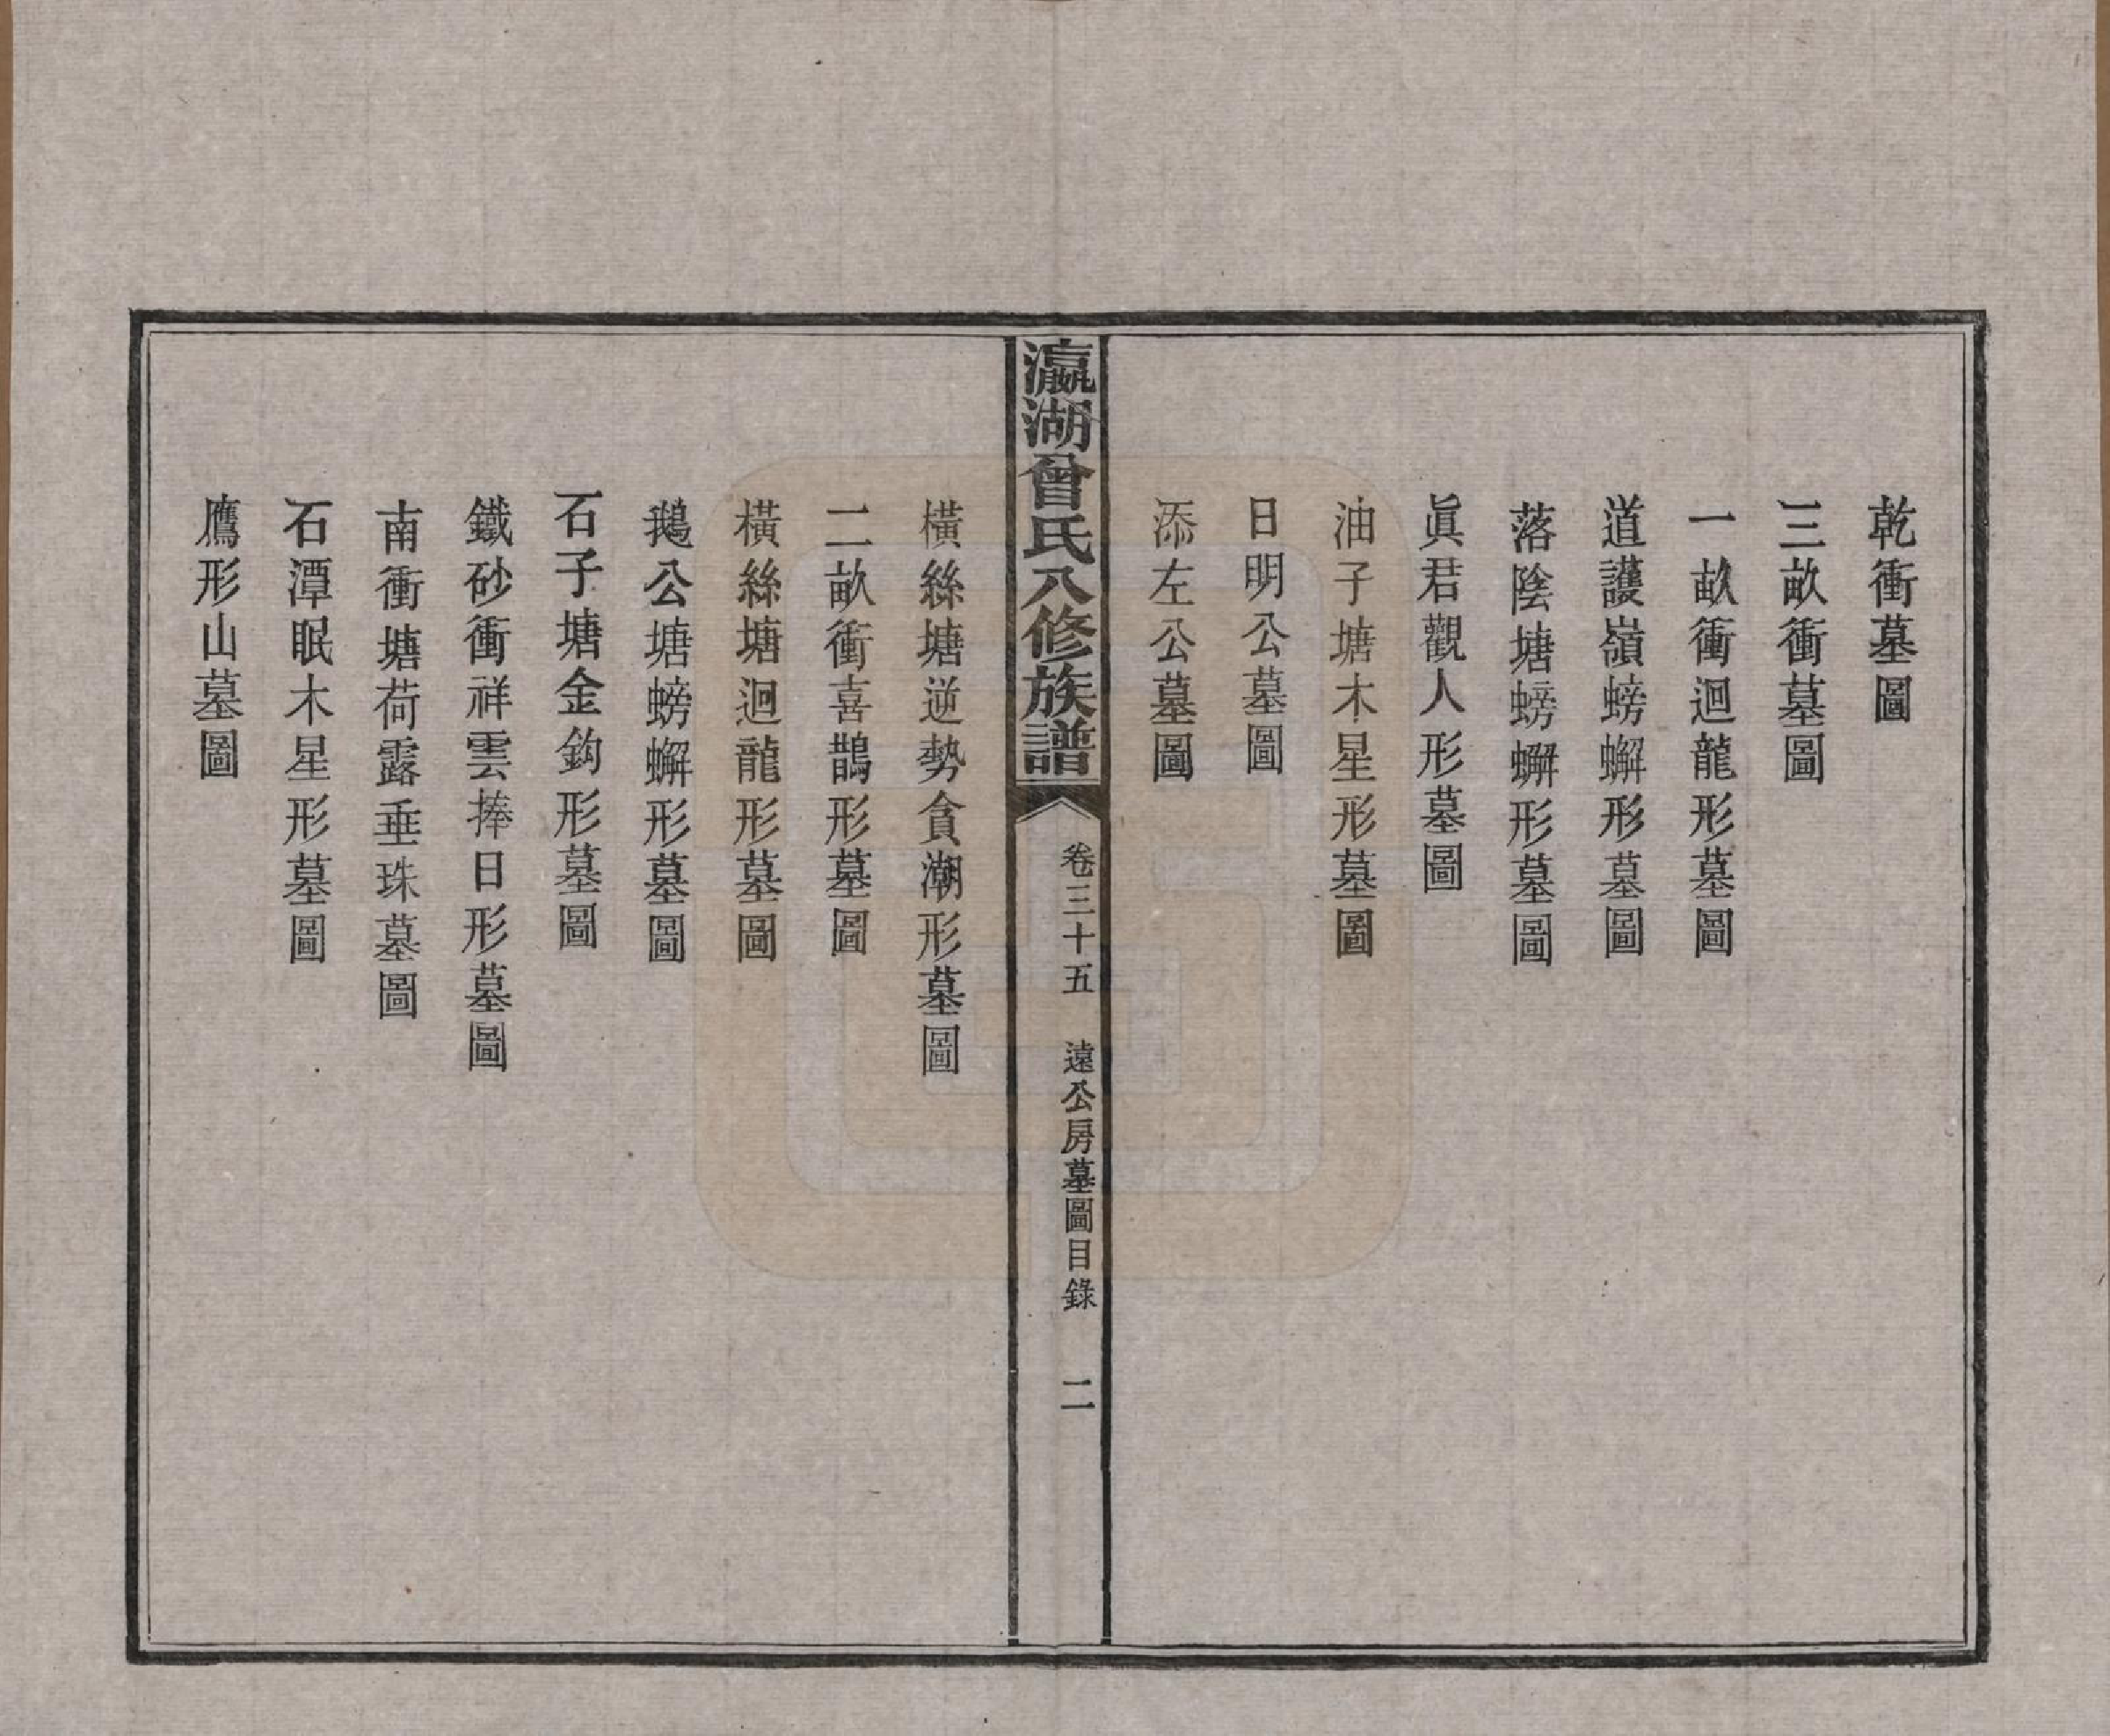 乾衝墓圖
三畝衝墓圖
一畝衝迴龍形墓圖
道護嶺螃蠏形墓圖
落陰塘螃蠏形墓圖
眞君觀人形墓圖
油子塘木星形墓圖
日明公墓圖
添左公墓圖
瀛湖曾氏八修族譜
卷三十五 遠公房墓圖目錄 二
橫絲塘逆勢貪潮形墓圖
二畝衝喜鵲形墓圖
橫絲塘迴龍形墓圖
鵝公塘螃蠏形墓圖
石子塘金鈎形墓圖
鐵砂衝祥雲捧日形墓圖
南衝塘荷露垂珠墓圖
石潭眠木星形墓圖
鷹形山墓圖